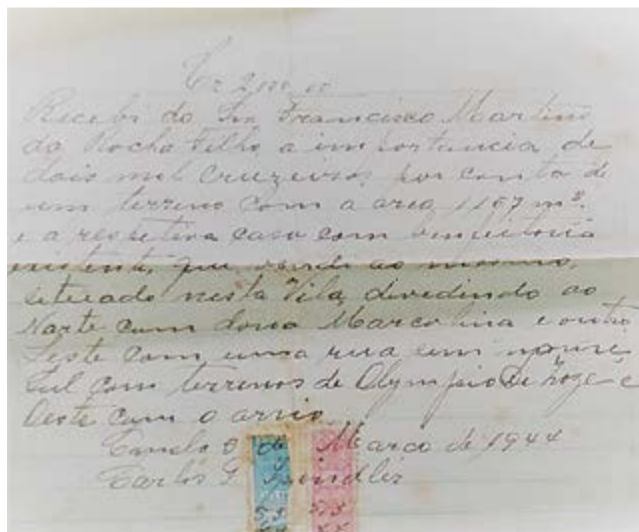 Cr 2,000,00
Recebi do Snr Francisco Martins
da Rocha Filho, a importancia de
dois mil Cruzeiros, por conta de
um terreno com a area 1167 m².
e a respetiva casa com
existente, que vendi ao mesmo,
situado nesta Vila, dividindo ao
Norte com dona Marcolina e outro
Leste com uma rua sem
Sul com terrenos de Olympio de e
Oeste com o
de Março de 1944
Carlos